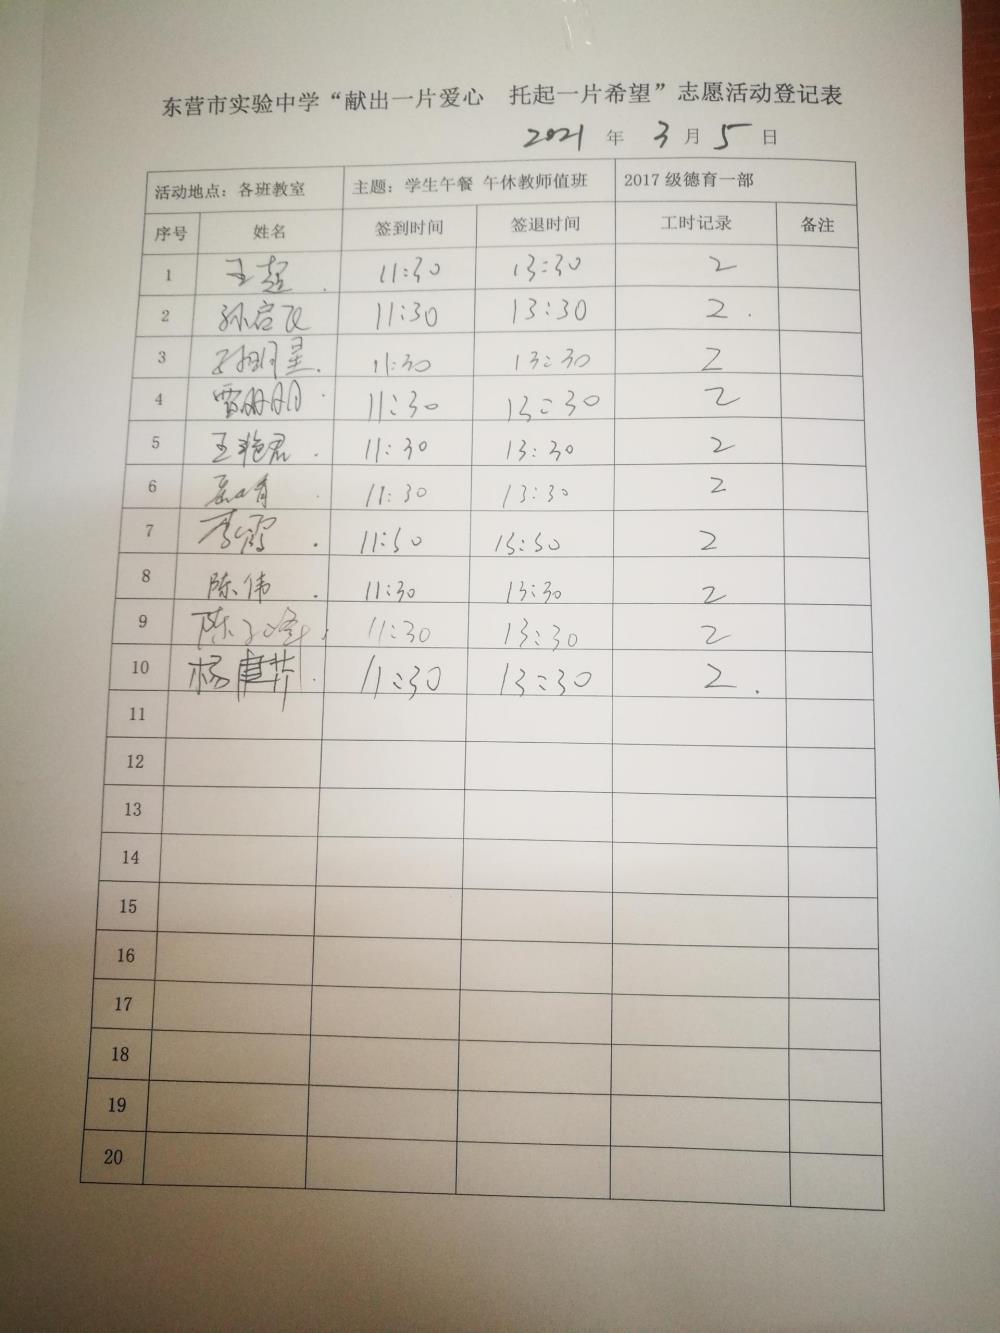 东营市实验中学“献出一片爱心 托起一片希望”志愿活动登记表
2021 年 3 月 5 日
活动地点：各班教室 主题：学生午餐 午休教师值班 2017 级德育一部
序号 姓名 签到时间 签退时间 工时记录 备注
1 王超 11:30 13:30 2
2 孙启飞 11:30 13:30 2
3 11:30 13:30 2
4 雷明月 11:30 13:30 2
5 王艳君 11:30 13:30 2
6 11:30 13:30 2
7 李霞 11:30 13:30 2
8 陈伟 11:30 13:30 2
9 陈 11:30 13:30 2
10 杨 11:30 13:30 2
11
12
13
14
15
16
17
18
19
20